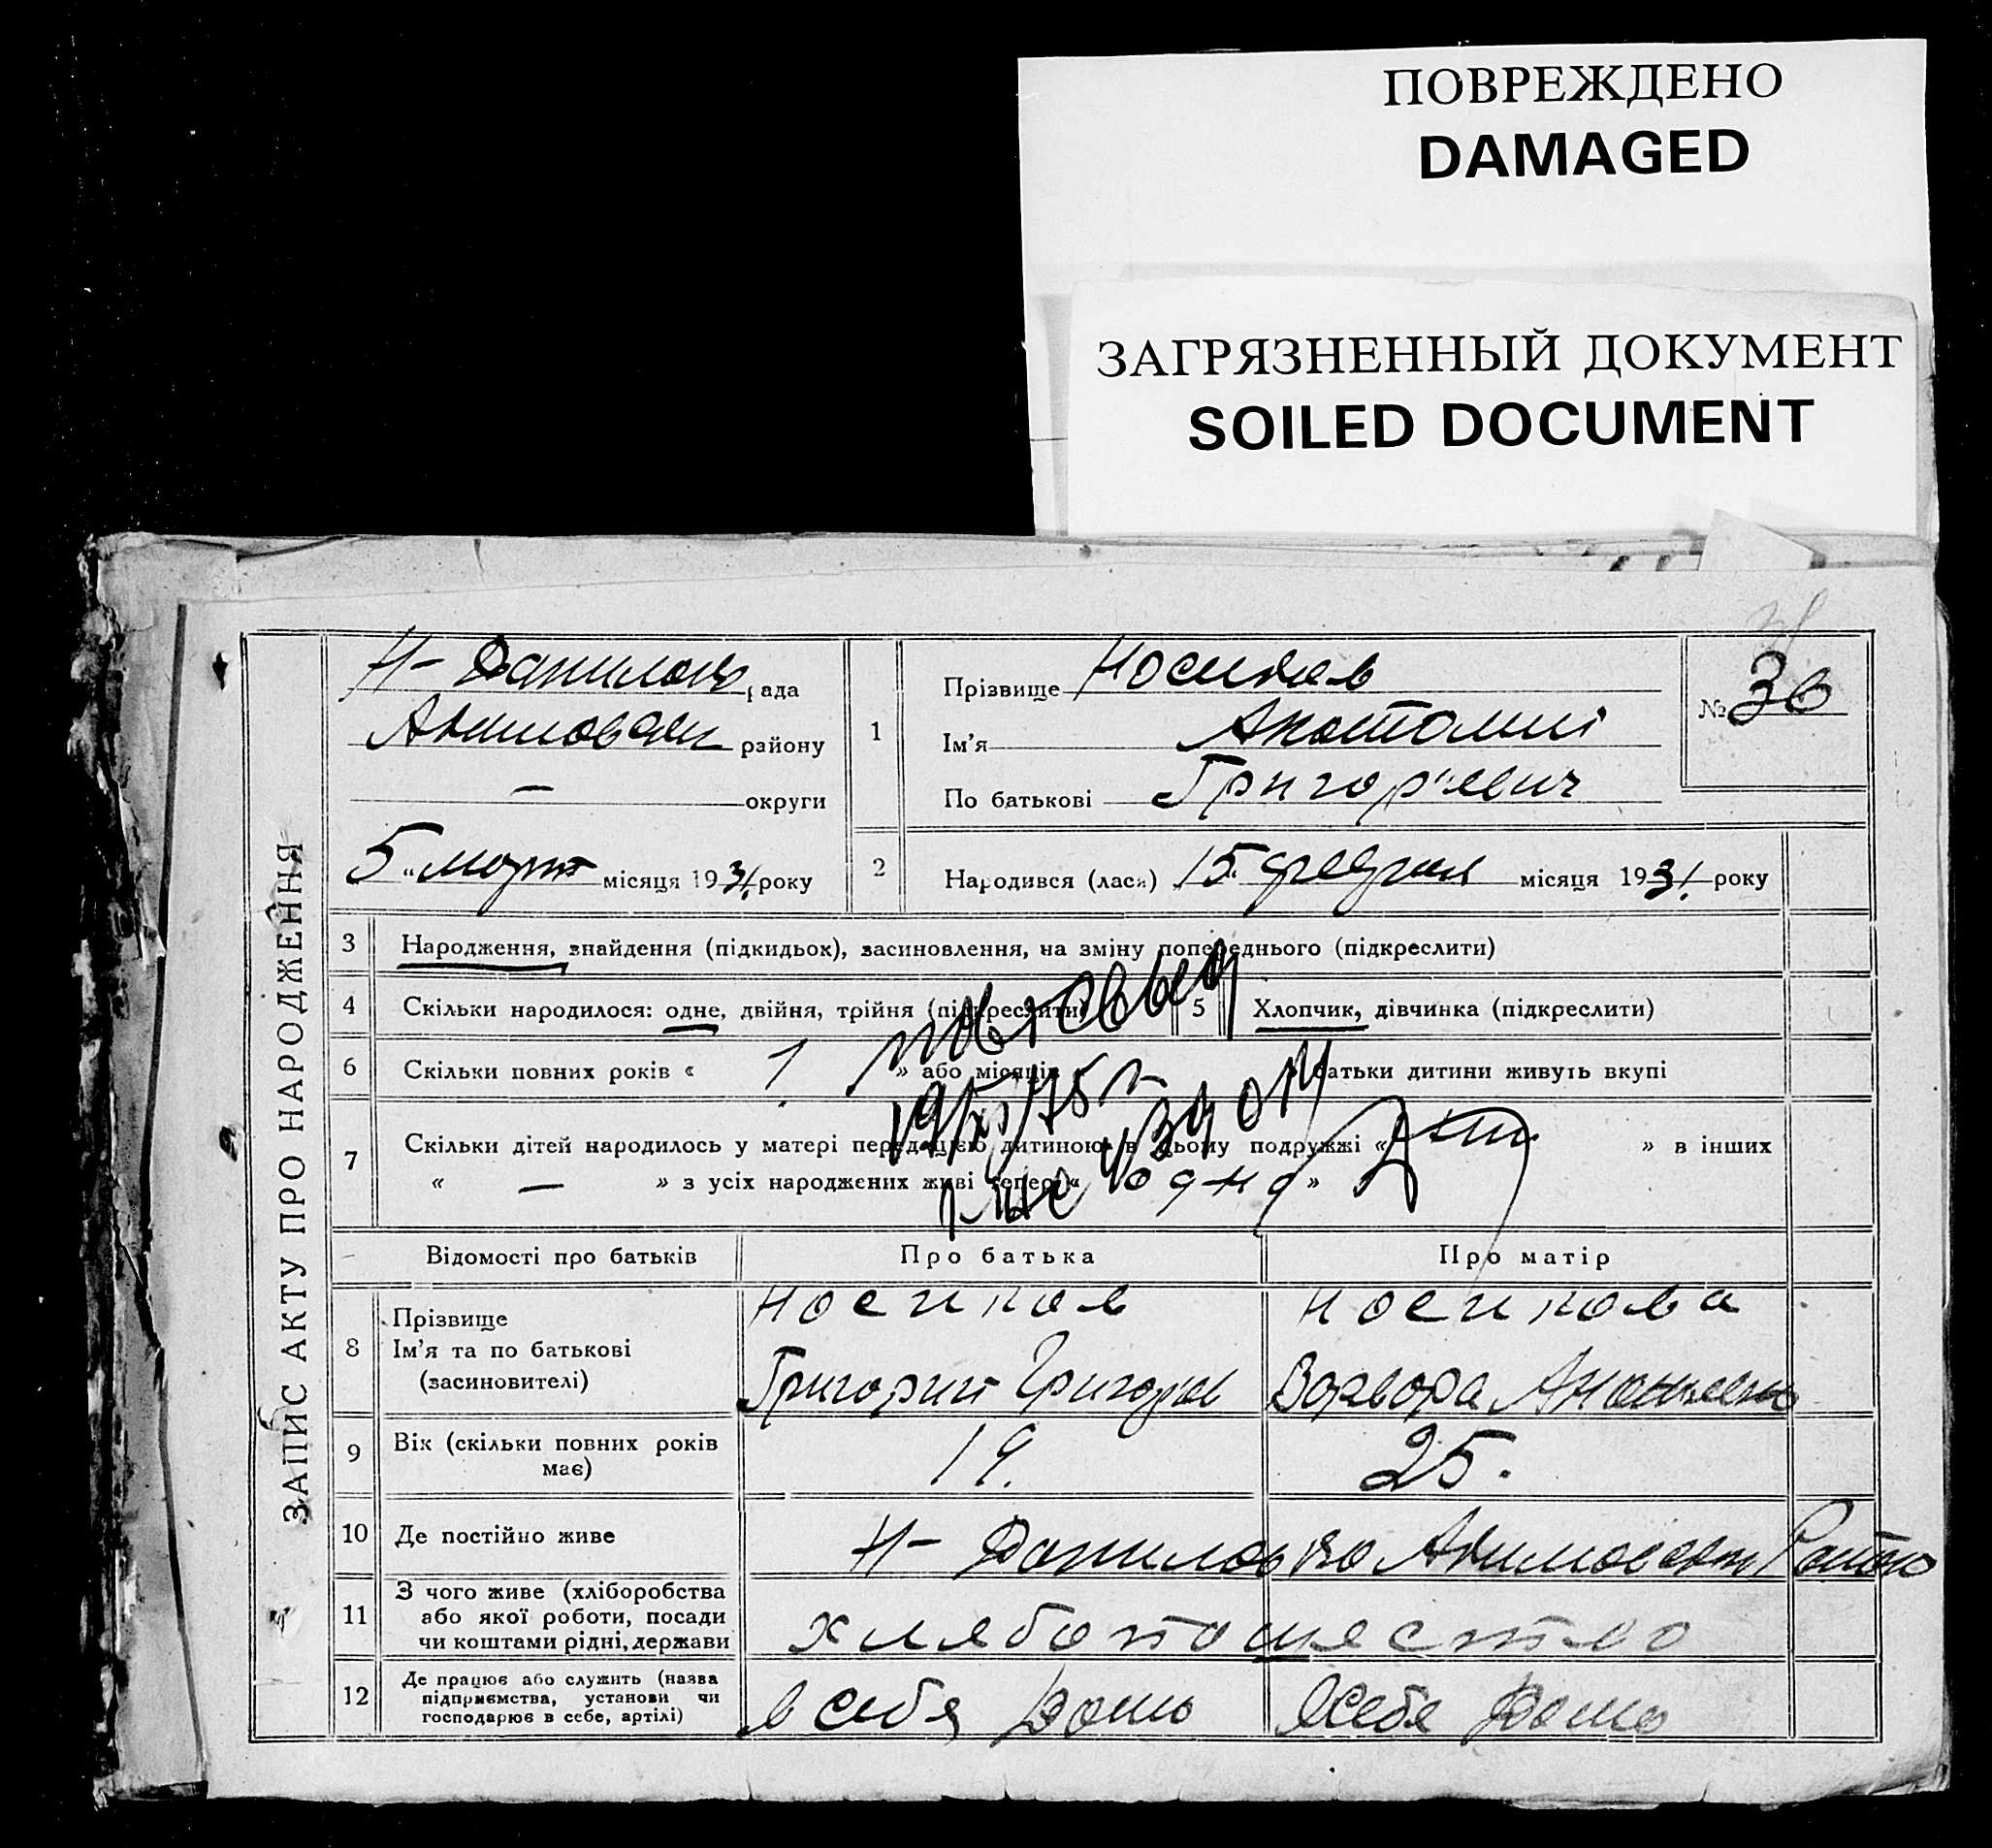 ПОВРЕЖДЕНО
DAMAGED
ЗАГРЯЗНЕННЫЙ ДОКУМЕНТ
SOILED DOCUMENT
ЗАПИС АКТУ ПРО НАРОДЖЕННЯ
Н-Данилов рада
району
— округи
5 " март місяця 1931 року
1
Прізвище Носиков
Ім'я Анотолиі
По батькові Григор'евич
№ 36
2
Народився (лася) 15 февраля місяця 1931 року
3 Народження, знайдення (підкидьок), засиновлення, на зміну попереднього (підкреслити)
4 Скільки народилося: одне, двійня, трійня (підкреслити)
5 Хлопчик, дівчинка (підкреслити)
6 Скільки повних років « 1 » або місяців батьки дитини живуть вкупі
19/XI/75 г.
7 Скільки дітей народилось у матері перед цією дитиною: в цьому подружжі « » в інших
« — » з усіх народжених живі тепер « одна »
Відомості про батьків Про батька Про матір
8 Прізвище
Ім'я та по батькові
(засиновителі)
Носиков
Григорий Григорев
Носикова
Варвора
9 Вік (скільки повних років має)
19.
25.
10 Де постійно живе
Н-Даниловко
11 З чого живе (хліборобства
або якої роботи, посади
чи коштами рідні, держави
хлябопошество
12 Де працює або служить (назва
підприємства, установи чи
господарює в себе, артілі)
в себя дома
в себе дома